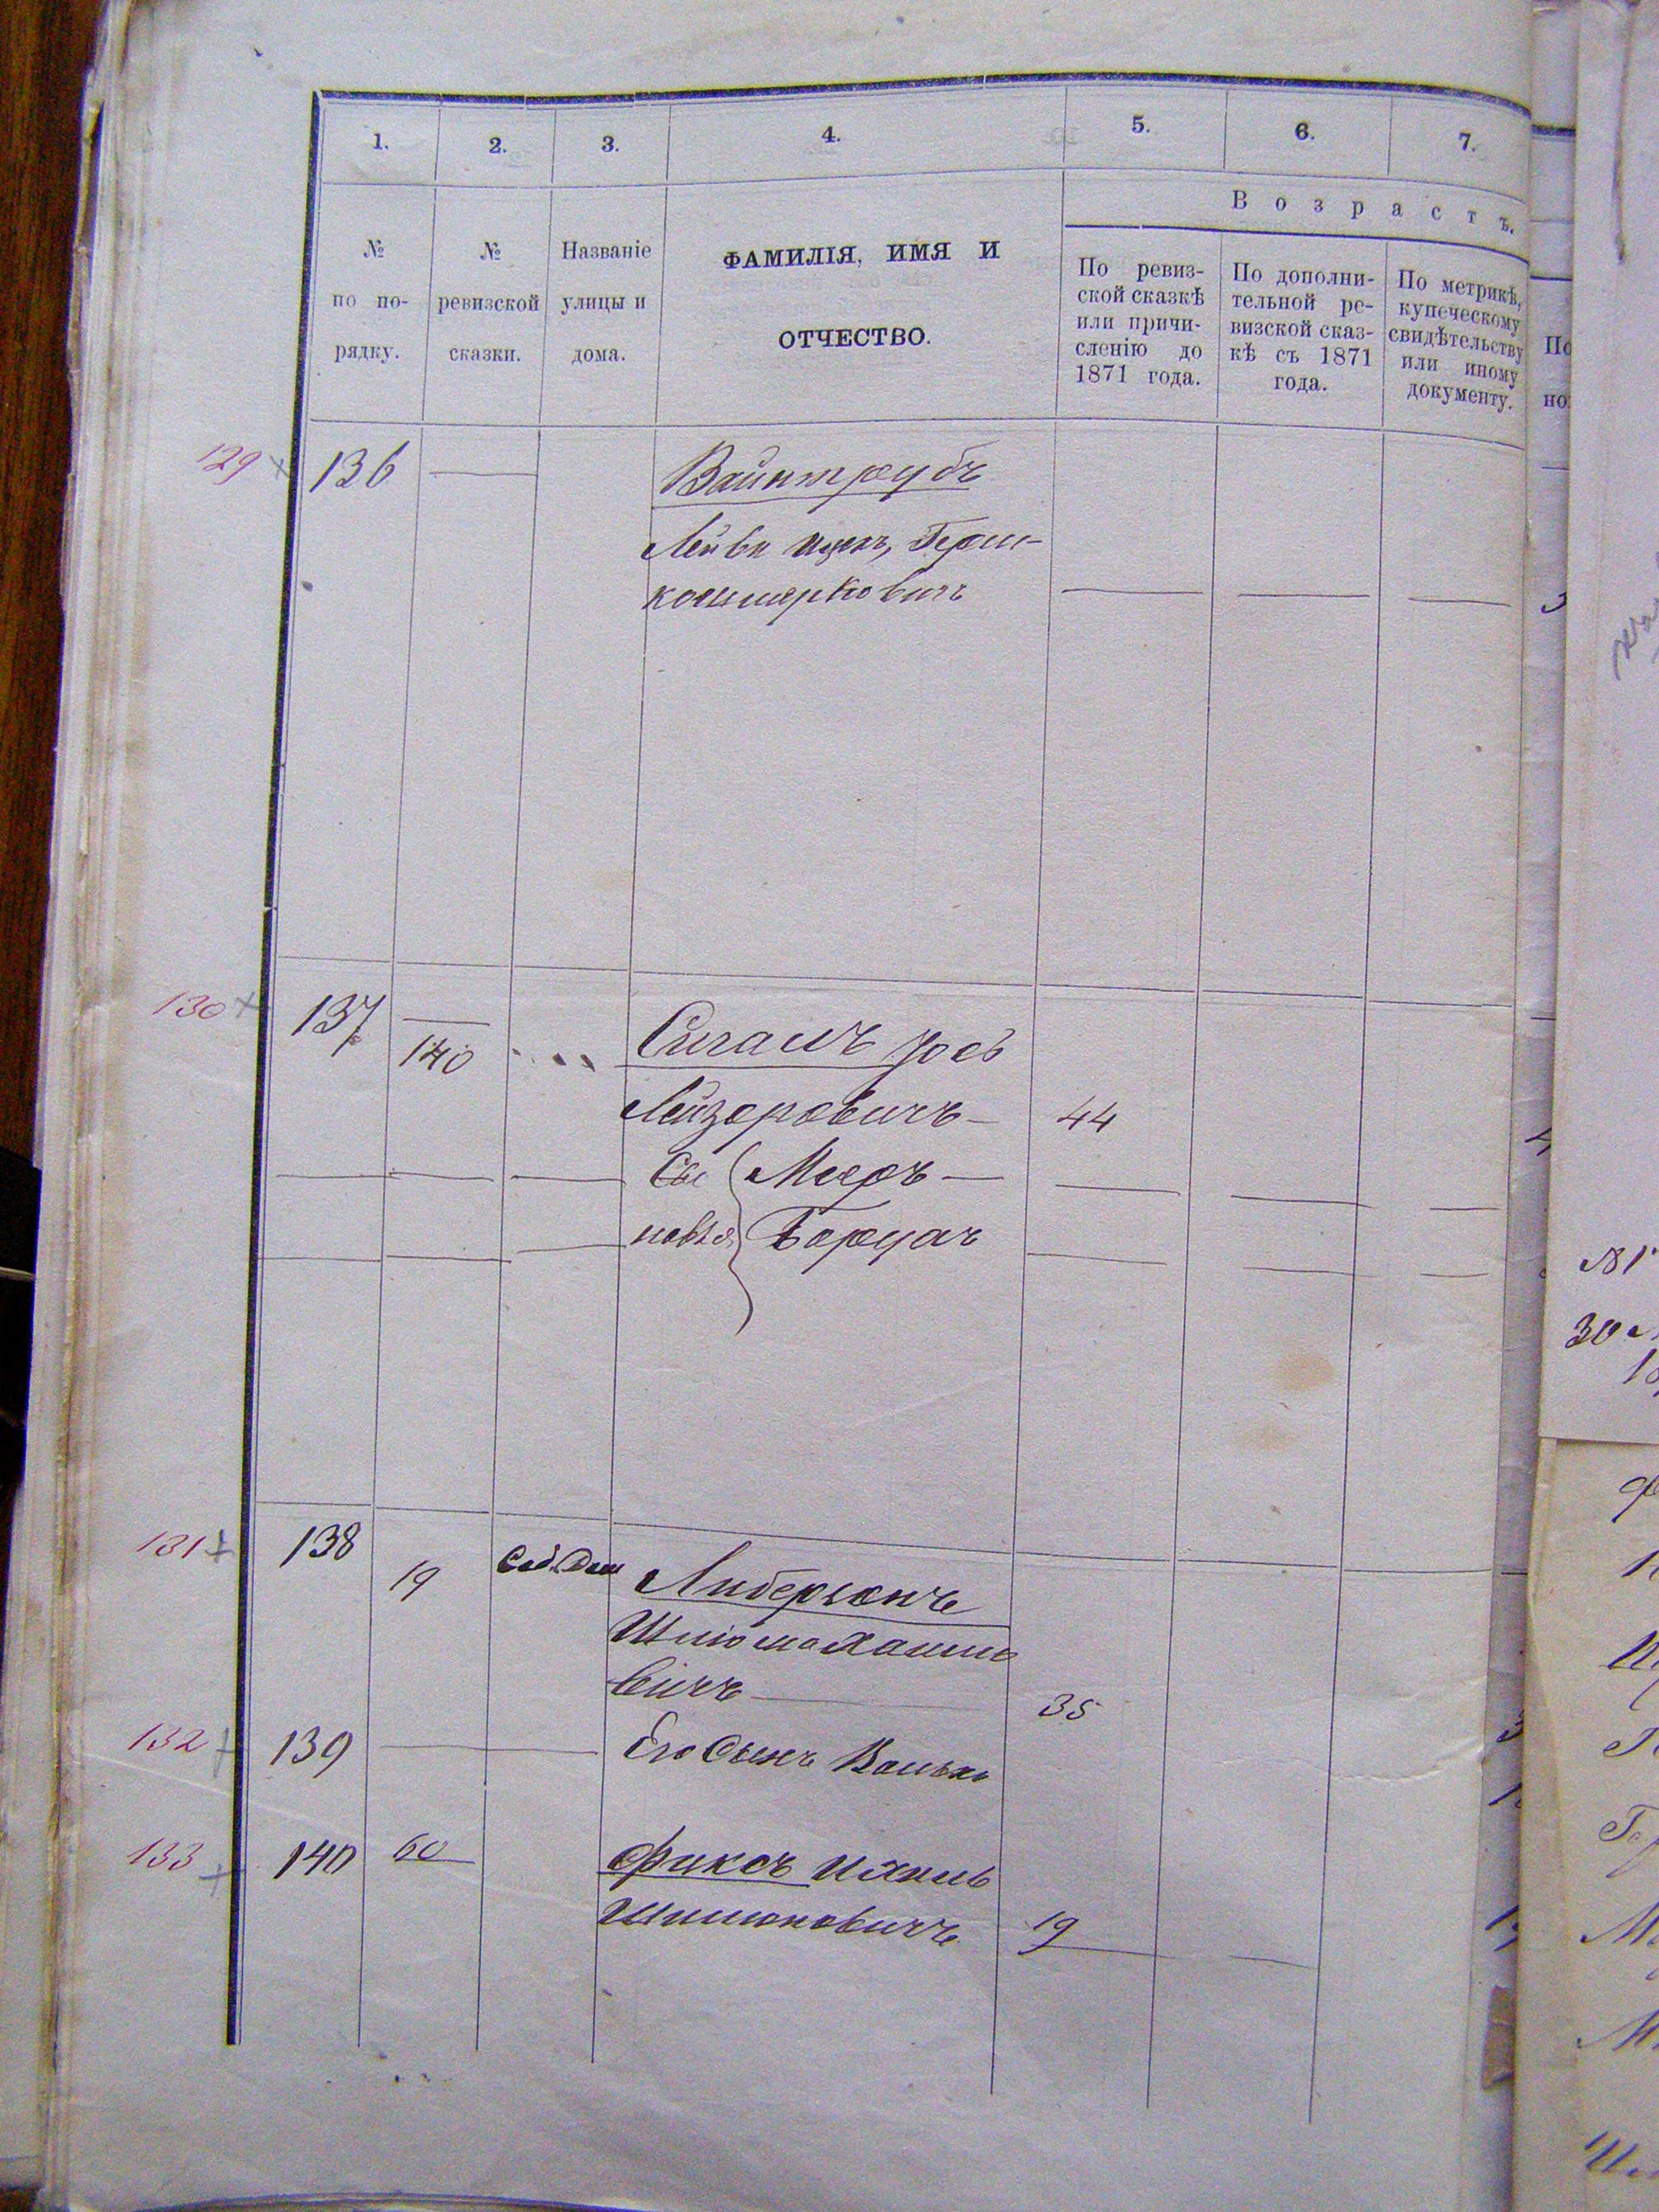 1. 2. 3. 4. 5. 6. 7.
Возрастъ.
№ по по-рядку.
№ ревизской сказки.
Названіе улицы и дома.
ФАМИЛІЯ, ИМЯ И
ОТЧЕСТВО.
По ревиз-
ской сказкѣ
или причи-
сленію до
1871 года.
По дополни-
тельной ре-
визской сказ-
кѣ съ 1871
года.
По метрикѣ,
купеческому
свидѣтельству
или иному
документу.
129 136 Вайнтрубъ
Лейба Ицекъ, Герш-
130 137 140 Сигалъ Іосъ
Лейзоровичъ 44
Сы Мееръ
новья Борухъ
131 138 19 Соб. Дом Либерзонъ
Шліома Хаимо
вичъ 35
132 139 Его Сынъ
133 140 60 Фиксъ
Шимоновичъ 19